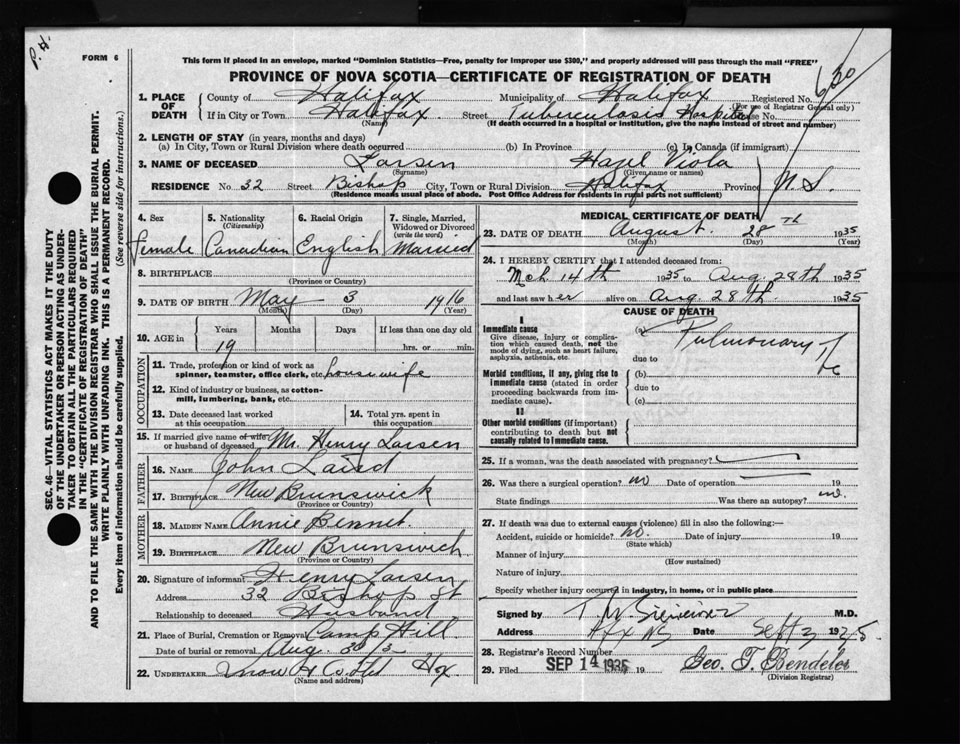 P. H.
FORM 6
This form if placed in an envelope, marked "Dominion Statistics—Free, penalty for improper use $300," and properly addressed will pass through the mail "FREE"
PROVINCE OF NOVA SCOTIA—CERTIFICATE OF REGISTRATION OF DEATH
1. PLACE OF DEATH
County of Halifax Municipality of Halifax Registered No. 630
(For use of Registrar General only)
If in City or Town Halifax Street Tuberculosis Hospital House No.
(Name) (If death occurred in a hospital or institution, give the name instead of street and number)
2. LENGTH OF STAY (in years, months and days)
(a) In City, Town or Rural Division where death occurred (b) In Province (c) In Canada (if immigrant)
3. NAME OF DECEASED Larsen Hazel Viola
(Surname) (Given name or names)
RESIDENCE No 32 Street Bishop City, Town or Rural Division Halifax Province N.S.
(Residence means usual place of abode. Post Office Address for residents in rural parts not sufficient)
4. Sex
Female
5. Nationality
(Citizenship)
Canadian
6. Racial Origin
English
7. Single, Married, Widowed or Divorced
(write the word)
Married
8. BIRTHPLACE
(Province or Country)
9. DATE OF BIRTH May 3 1916
(Month) (Day) (Year)
10. AGE in Years Months Days If less than one day old
19 hrs. or min.
OCCUPATION
11. Trade, profession or kind of work as
spinner, teamster, office clerk, etc. housewife
12. Kind of industry or business, as cotton-
mill, lumbering, bank, etc.
13. Date deceased last worked
at this occupation
14. Total yrs. spent in
this occupation
15. If married give name of wife
or husband of deceased Mr. Henry Larsen
FATHER
16. NAME John Laird
17. BIRTHPLACE New Brunswick
(Province or Country)
MOTHER
18. MAIDEN NAME Annie Bennet
19. BIRTHPLACE New Brunswick
(Province or Country)
20. Signature of informant Henry Larsen
Address 32 Bishop St
Relationship to deceased Husband
21. Place of Burial, Cremation or Removal Camp Hill
Date of burial or removal Aug. 30/35
22. UNDERTAKER Snow & Co Ltd Hfx
(Name and address)
MEDICAL CERTIFICATE OF DEATH
23. DATE OF DEATH August 28TH 1935
(Month) (Day) (Year)
24. I HEREBY CERTIFY that I attended deceased from:
Mch 14th 1935 to Aug. 28th 1935
and last saw her alive on Aug. 28th. 1935
CAUSE OF DEATH
I
Immediate cause
Give disease, injury or complica-
tion which caused death, not the
mode of dying, such as heart failure,
asphyxia, asthenia, etc.
(a) Pulmonary Tbc
due to
Morbid conditions, if any, giving rise to
immediate cause (stated in order
proceeding backwards from im-
mediate cause).
(b)
due to
(c)
II
Other morbid conditions (if important)
contributing to death but not
causally related to immediate cause.
25. If a woman, was the death associated with pregnancy?
26. Was there a surgical operation? no Date of operation 19
State findings Was there an autopsy? no.
27. If death was due to external causes (violence) fill in also the following:—
Accident, suicide or homicide? no. Date of injury 19
(State which)
Manner of injury
(How sustained)
Nature of injury
Specify whether injury occurred in industry, in home, or in public place
Signed by M.D.
Address Hfx NS Date Sept 3 1935.
28. Registrar's Record Number
29. Filed SEP 14 1935 19 Geo. T. Bendeler
(Division Registrar)
SEC. 46—VITAL STATISTICS ACT MAKES IT THE DUTY
OF THE UNDERTAKER OR PERSON ACTING AS UNDER-
TAKER TO OBTAIN ALL THE PARTICULARS REQUIRED
IN THE "CERTIFICATE OF REGISTRATION OF DEATH"
AND TO FILE THE SAME WITH THE DIVISION REGISTRAR WHO SHALL ISSUE THE BURIAL PERMIT.
WRITE PLAINLY WITH UNFADING INK. THIS IS A PERMANENT RECORD.
Every item of information should be carefully supplied. (See reverse side for instructions.)